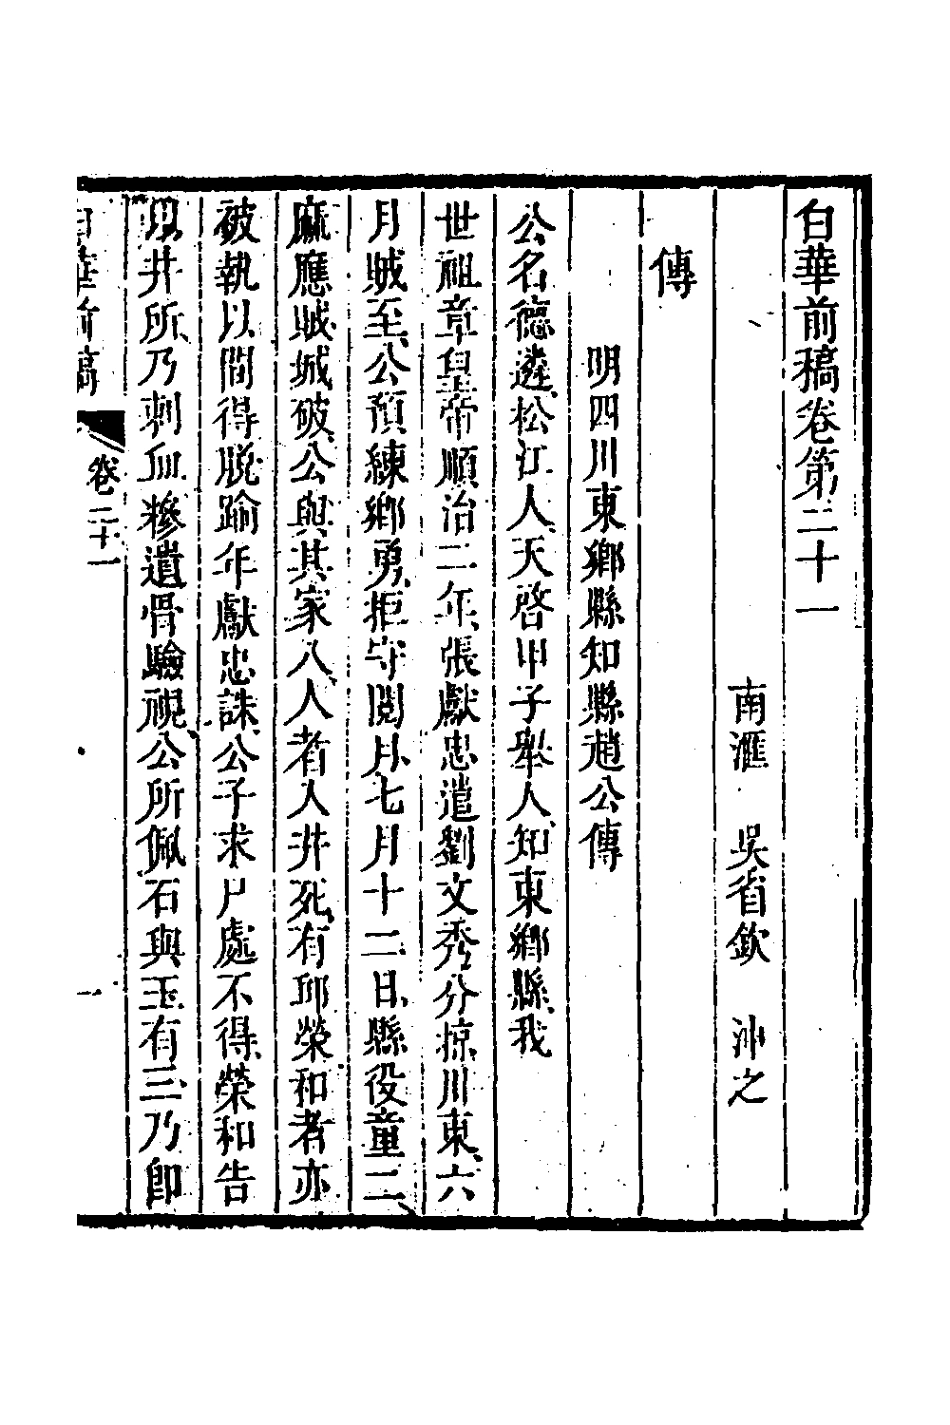 白華前稿卷第二十一
南滙 吳省欽 沖之
傳
明四川東鄉縣知縣趙公傳
公名德遴松江人天啓甲子舉人知東鄉縣我
世祖章皇帝順治二年張獻忠遣劉文秀分掠川東六
月賊至公預練鄉勇拒守閱月七月十二日縣役童二
麻應賊城破公與其家八人者入井死有邱榮和者亦
破執以間得脫踰年獻忠誅公子求尸處不得榮和告
以井所乃刺血糝遺骨驗視公所佩石與玉有三乃卽
白華前稿
卷二十一
一